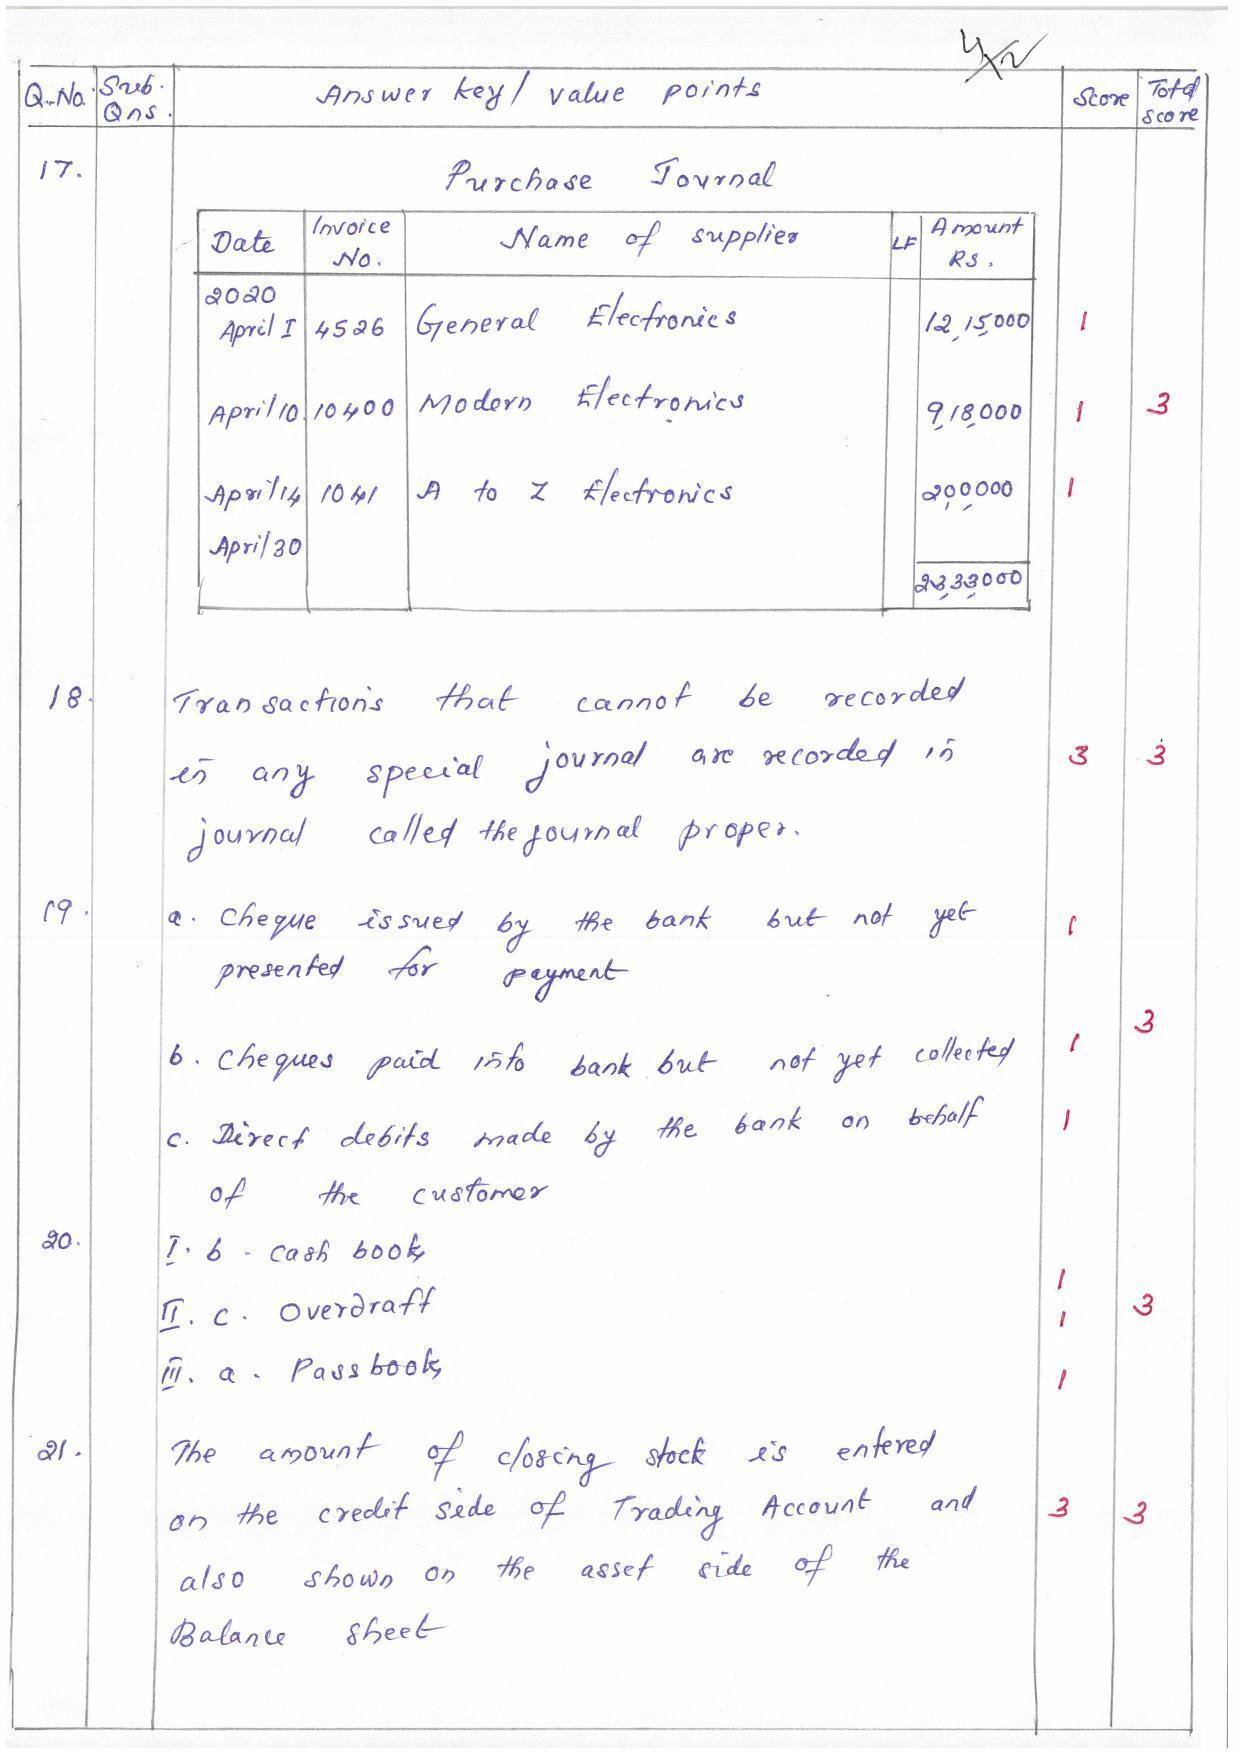 4/12
Q.No. Sub. Qns. Answer key/ value points Score Total score
17. Purchase Journal
Date Invoice No. Name of supplier LF Amount Rs.
2020
April 1 4526 General Electronics 12,15,000 1
April 10 10400 Modern Electronics 9,18,000 1 3
April 14 1041 A to Z Electronics 2,00,000 1
April 30
23,33,000
18. Transactions that cannot be recorded
in any special journal are recorded in 3 3
journal called the journal proper.
19. a. Cheque issued by the bank but not yet 1
presented for payment
3
b. Cheques paid into bank but not yet collected 1
c. Direct debits made by the bank on behalf 1
of the customer
20. I. b - cash book 1
II. c. Overdraft 1 3
III. a. Pass book 1
21. The amount of closing stock is entered
on the credit side of Trading Account and 3 3
also shown on the asset side of the
Balance sheet